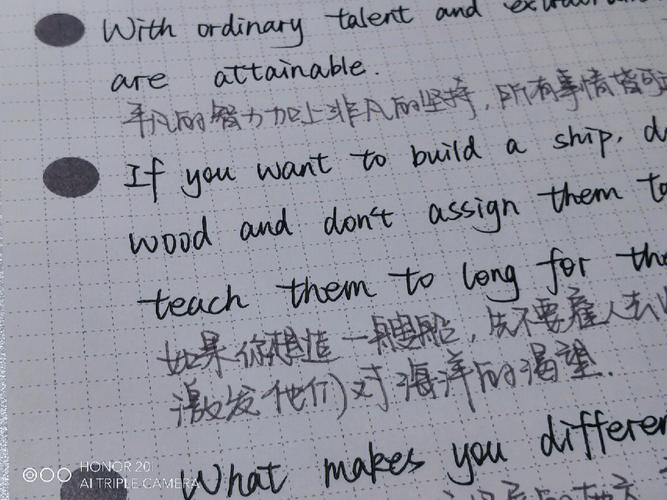 With ordinary talent and
are attainable.
平凡的智力加上非凡的坚持，所有事情皆可
If you want to build a ship, d
wood and don't assign them to
teach them to long for the
如果你想造一艘船，先不要雇人去
激发他们对海洋的渴望.
What makes you differen
HONOR 20
AI TRIPLE CAMERA